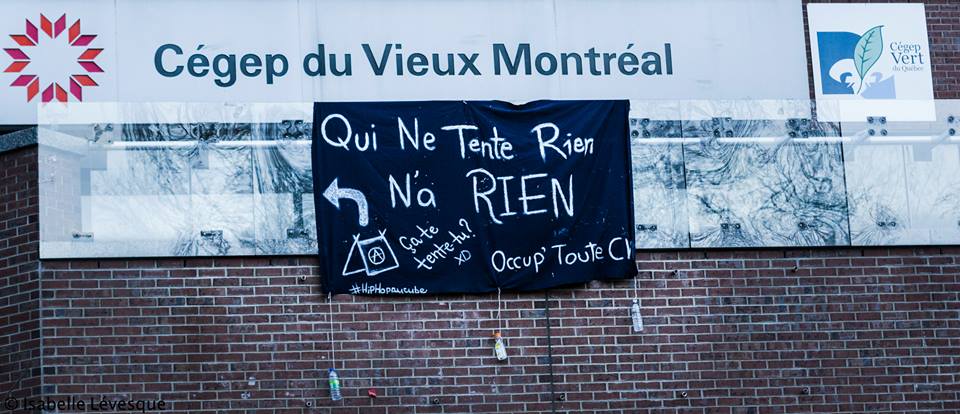 Cégep du Vieux Montréal
Cégep
Vert
du Québec
Qui Ne Tente Rien
N'a RIEN
Ça te
tente-tu?
XD
A
Occup' Toute
#HipHopaucube
© Isabelle Lévesque